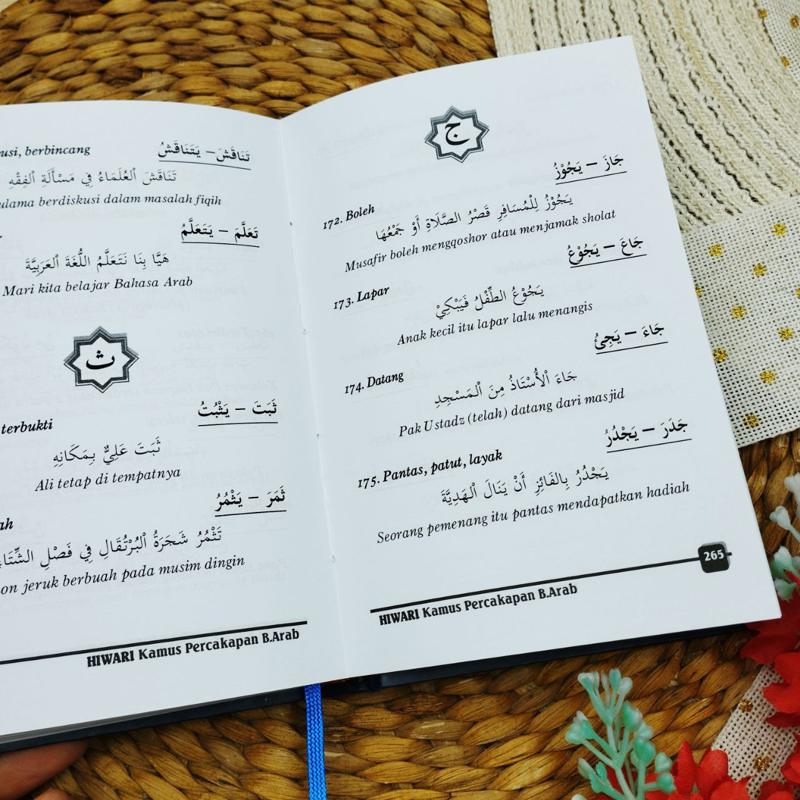 usi, berbincang
تَنَاقَشَ – يَتَنَاقَشُ
تَنَاقَشَ الْعُلَمَاءُ فِي مَسْأَلَةِ الْفِقْهِ
ulama berdiskusi dalam masalah fiqih
تَعَلَّمَ – يَتَعَلَّمُ
هَيَّا بِنَا نَتَعَلَّمُ اللُّغَةَ الْعَرَبِيَّةَ
Mari kita belajar Bahasa Arab
ث
terbukti
ثَبَتَ – يَثْبُتُ
ثَبَتَ عَلِيٌّ بِمَكَانِهِ
Ali tetap di tempatnya
ah
ثَمَرَ – يَثْمُرُ
تَثْمُرُ شَجَرَةُ الْبُرْتُقَالِ فِي فَصْلِ الشِّتَا
on jeruk berbuah pada musim dingin
HIWARI Kamus Percakapan B.Arab
ج
جَازَ – يَجُوْزُ
172. Boleh
يَجُوْزُ لِلْمُسَافِرِ قَصْرُ الصَّلَاةِ أَوْ جَمْعُهَا
Musafir boleh mengqoshor atau menjamak sholat
جَاعَ – يَجُوْعُ
173. Lapar
يَجُوْعُ الطِّفْلُ فَيَبْكِيْ
Anak kecil itu lapar lalu menangis
جَاءَ – يَجِئُ
174. Datang
جَاءَ الْأُسْتَاذُ مِنَ الْمَسْجِدِ
Pak Ustadz (telah) datang dari masjid
جَدَرَ – يَجْدُرُ
175. Pantas, patut, layak
يَجْدُرُ بِالْفَائِزِ أَنْ يَنَالَ الْهَدِيَّةَ
Seorang pemenang itu pantas mendapatkan hadiah
265
HIWARI Kamus Percakapan B.Arab